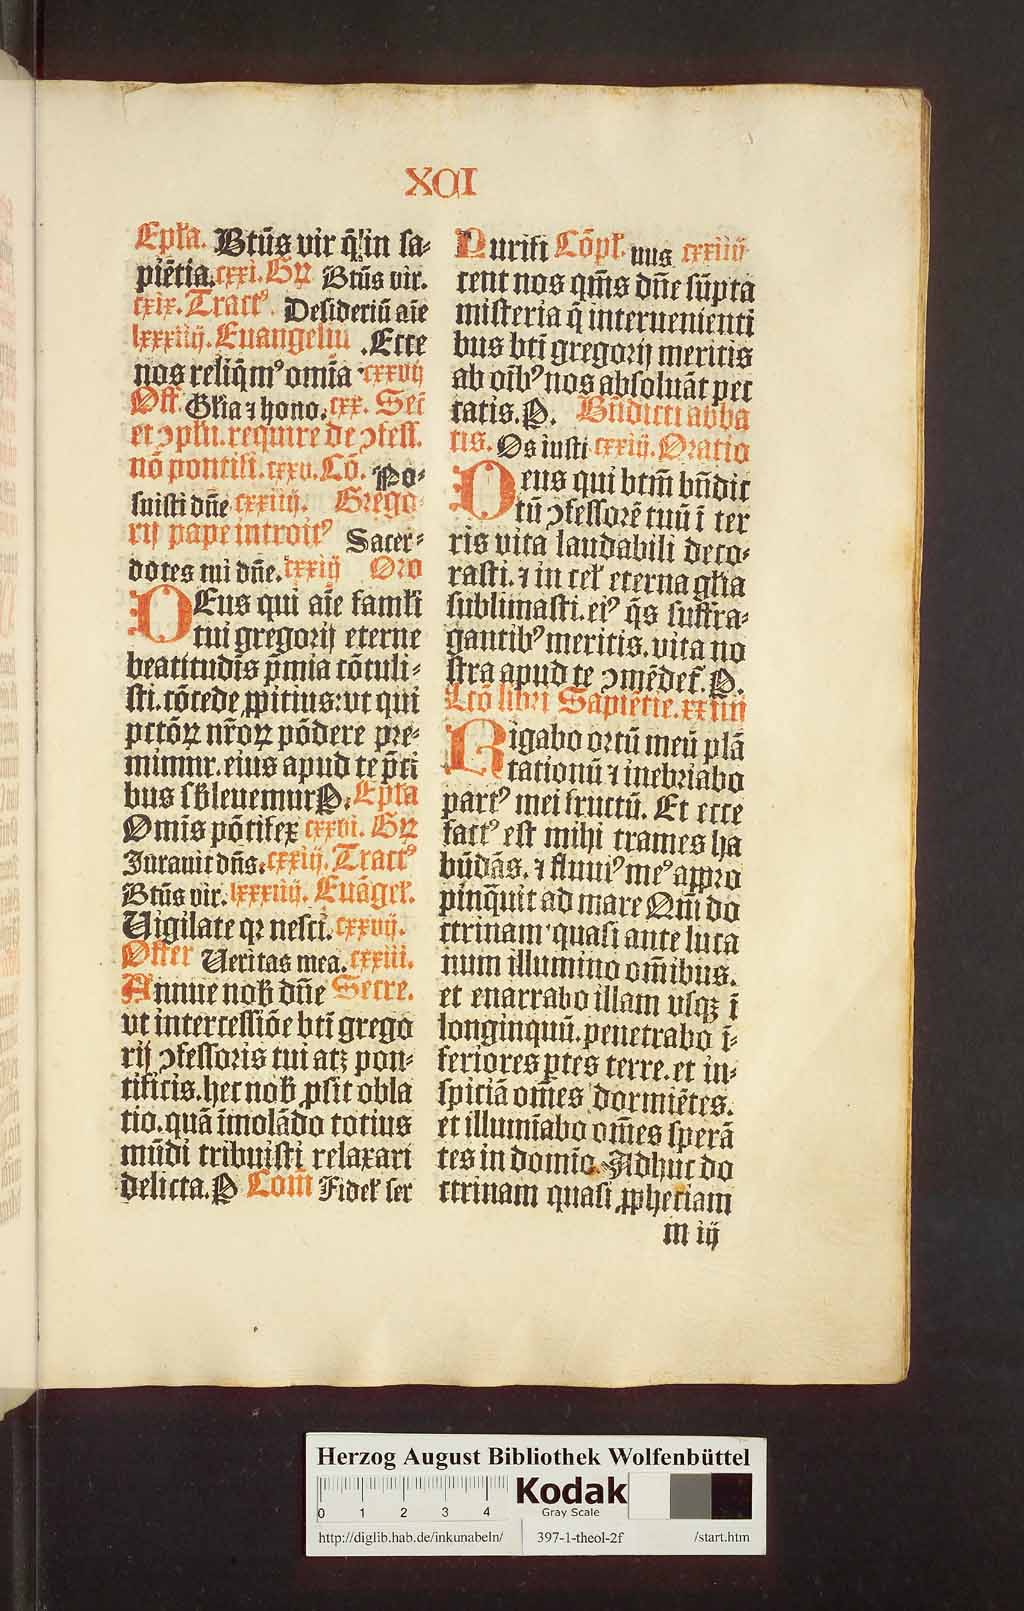 XCI
Epl̄a. Btūs vir q̄ in sa-
piētia. cxxi. Gꝝ Btūs vir.
cxix. Tractꝰ. Desideriū aīe
lxxxiiij. Euangeliū. Ecce
nos reliq̄mꝰ omīa cxxvij
Off. Gl̄ia ⁊ hono. cxx. Sec̄
et ↄplīi. require de ↄfess.
nō pontifi. cxxv. Cō. Po-
suisti dn̄e cxxiiij. Grego
rij pape introitꝰ Sacer-
dotes tui dn̄e. cxxiij Oro
DEus qui aīe famł'i
tui gregorij eterne
beatitudīs p̄mia cōtuli-
sti. cōcede ꝓpitius: vt qui
pctōꝝ nr̄oꝝ pōdere pre-
mimur. eius apud te p̄ci
bus sb̄leuemur P. Epl̄a
Omīs pōtifex cxxvi. Gꝝ
Iurauit dn̄s. cxxiij. Tractꝰ
Btūs vir. lxxxiiij. Euāgel'.
Uigilate qꝛ nesci. cxxvij.
Offer Ueritas mea. cxxiii.
Annue nob̄ dn̄e Secre.
vt intercessiōe btī grego
rij ↄfessoris tui atqꝫ pon-
tificis. hec nob̄ ꝓsit obla
tio. quā īmolādo totius
mūdi tribuisti relaxari
delicta. P Com̄ Fidel' ser
Purifi Cōpl'. uus cxxiiij
cent nos qm̄s dn̄e sūpta
misteria q̄ interuenienti
bus btī gregorij meritis
ab oībꝰ nos absoluāt pec
catis. P. Bn̄dicti abba
tis. Os iusti cxxiij. Oratio
Deus qui btm̄ bn̄dic
tū ↄfessorē tuū ī ter
ris vita laudabili deco-
rasti. ⁊ in cel' eterna gl̄ia
sublimasti. eiꝰ q̄s suffra-
gantibꝰ meritis. vita no
stra apud te ↄmēdet'. P.
Lcō libri Sapiētie. xxiiii
Rigabo ortū meū plā
tationū ⁊ inebriabo
partꝰ mei fructū. Et ecce
factꝰ est mihi trames ha
būdās. ⁊ fluuiꝰ meꝰ appro
pinq̄uit ad mare Qm̄ do
ctrinam quasi ante luca
num illumino om̄ibus.
et enarrabo illam vsqꝫ ī
longinquū. penetrabo ī-
feriores ꝑtes terre. et in-
spiciā om̄es dormiētes.
et illumīabo om̄es sperā
tes in domīo. Adhuc do
ctrinam quasi ꝓphetiam
m iij
Herzog August Bibliothek Wolfenbüttel
0 1 2 3 4
Kodak
Gray Scale
http://diglib.hab.de/inkunabeln/ 397-1-theol-2f /start.htm